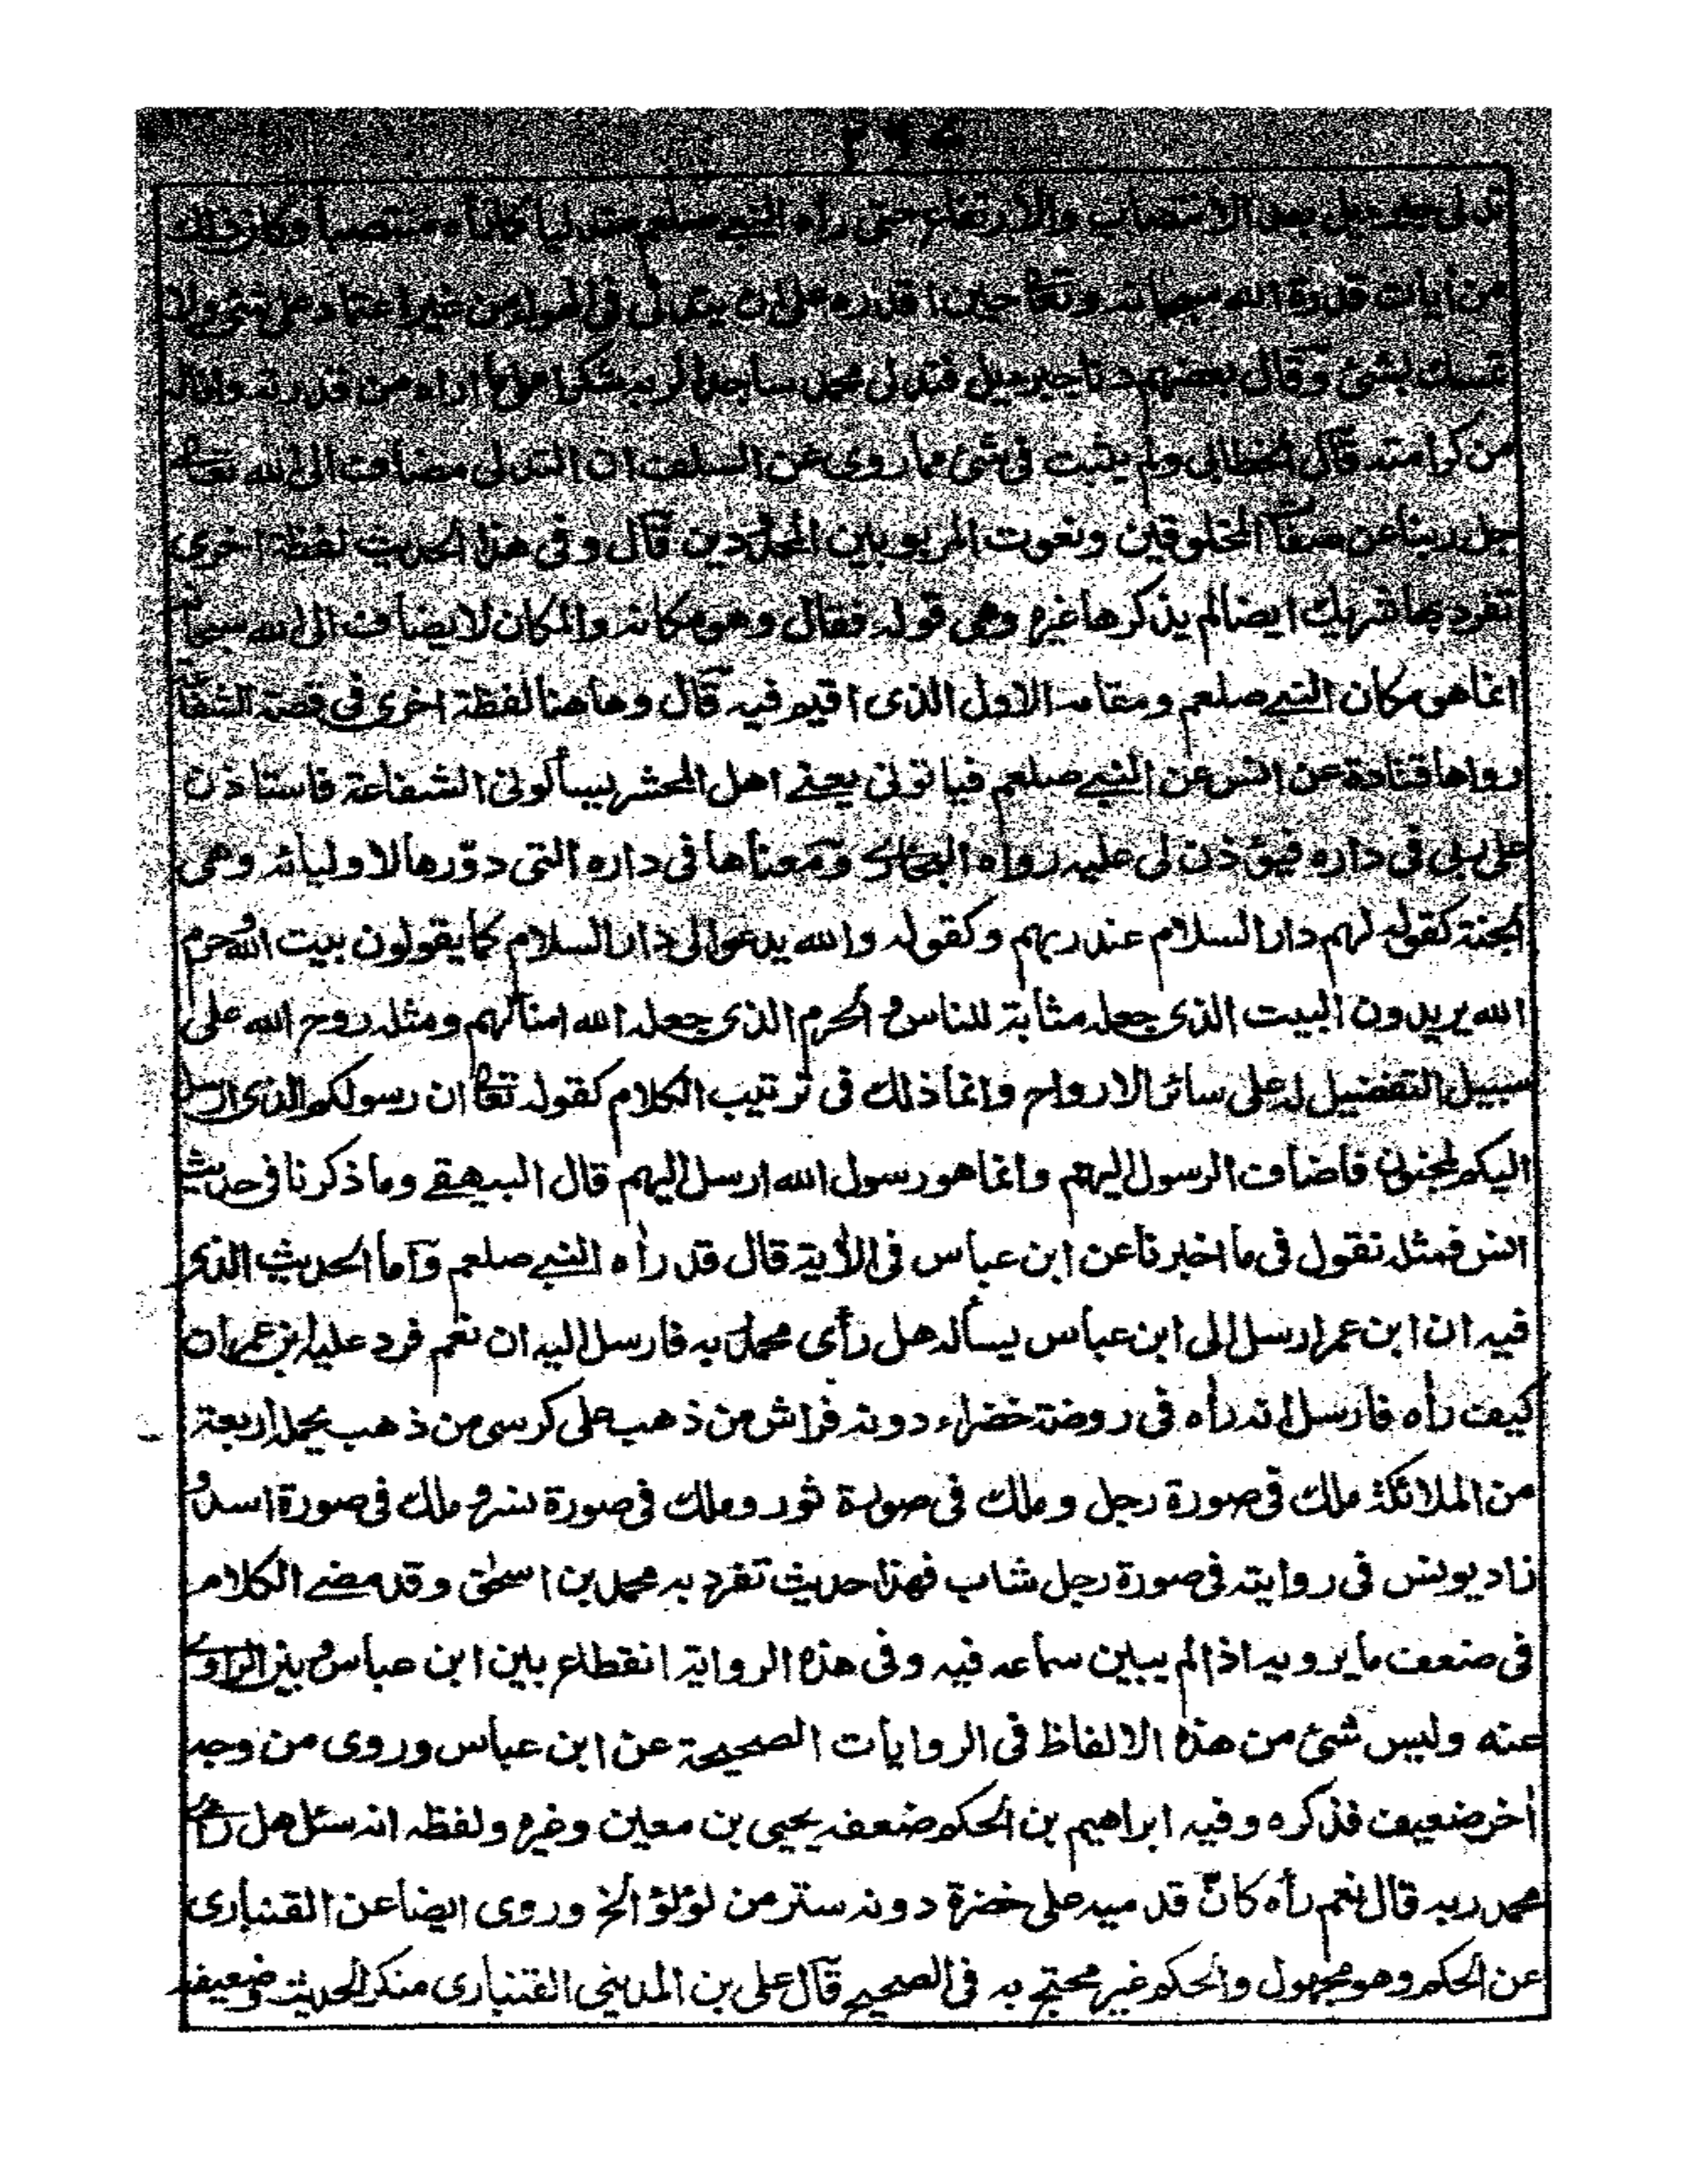 تدلى جبرئيل بعد الانتصاب والارتفاع حتى رأه النبي صلعم متدليا كما رأه منتصبا وكان ذلك
من أيات قدرة الله سبحانه وتعا حين اقدره على ان يتدلى فى الهواء من غير اعتماد على شئ ولا
تمسك بشئ وقال بعضهم دنا جبرئيل فتدلى محمد ساجدا لربه شكرا على ما اراه من قدرته واناله
من كرامته قال الخطابى ولم يثبت فى شئ مما روى عن السلف ان التدلى مضاف الى الله تعا
جل ربنا عن صفا المخلوقين ونعوت المربوبين المحدودين قال وفى هذا الحديث لفظة اخرى
تفرد بها شريك ايضا لم يذكرها غيره وهى قوله فقال وهو مكانه والمكان لا يضاف الى الله سبحا
انما هو مكان النبي صلعم ومقامه الاول الذى اقيم فيه قال وهاهنا لفظة اخرى فى قصة الشفا
رواها قتادة عن انس عن النبي صلعم فيأتونى يعنے اهل المحشر يسألونى الشفاعة فاستاذن
على ربى فى داره فيؤذن لى عليه رواه البخارے ومعناها فى داره التى دوّرها لاوليائه وهى
الجنة كقوله لهم دار السلام عند ربهم وكقوله والله يدعوا لى دار السلام كما يقولون بيت الله وحرم
الله يريدون البيت الذى جعله مثابة للناس و الحرم الذى جعله الله امنا لهم ومثله روح الله على
سبيل التفضيل له على سائر الارواح وانما ذلك فى ترتيب الكلام كقوله تعا ان رسولكم الذى ارسل
اليكم لمجنون فاضاف الرسول اليهم وانما هو رسول الله ارسل اليهم قال البيهقے وما ذكرنا فى حديث
انس فمثله نقول فى ما اخبرنا عن ابن عباس فى الأية قال قد رأه النبي صلعم وأما الحديث الذى
فيه ان ابن عمر ارسل الى ابن عباس يسأله هل رأى محمد ربه فارسل اليه ان نعم فرد عليه ابن عمر ان
كيف رأه فارسل انه رأه فى روضة خضراء دونه فراش من ذهب على كرسى من ذهب يحمله اربعة
من الملائكة ملك فى صورة رجل وملك فى صورة ثور وملك فى صورة نسر و ملك فى صورة اسد و
زاد يونس فى روايته فى صورة رجل شاب فهذا حديث تفرد به محمد بن اسحٰق وقد مضے الكلام
فى ضعف ما يرويه اذا لم يبين سماعه فيه وفى هذه الرواية انقطاع بين ابن عباس و بين الراوے
عنه وليس شئ من هذه الالفاظ فى الروايات الصحيحة عن ابن عباس وروى من وجه
أخر ضعيف فذكره وفيه ابراهيم بن الحكم ضعفه يحيى بن معين وغيره ولفظه انه سئل هل رأى
محمد ربه قال نعم رأه كأنّ قدميه على خضرة دونه ستر من لؤلؤ الخ وروى ايضا عن القنبارى
عن الحكم وهو مجهول والحكم غير محتج به فى الصحيح قال على بن المدينى القنبارى منكر الحديث وضعيفه